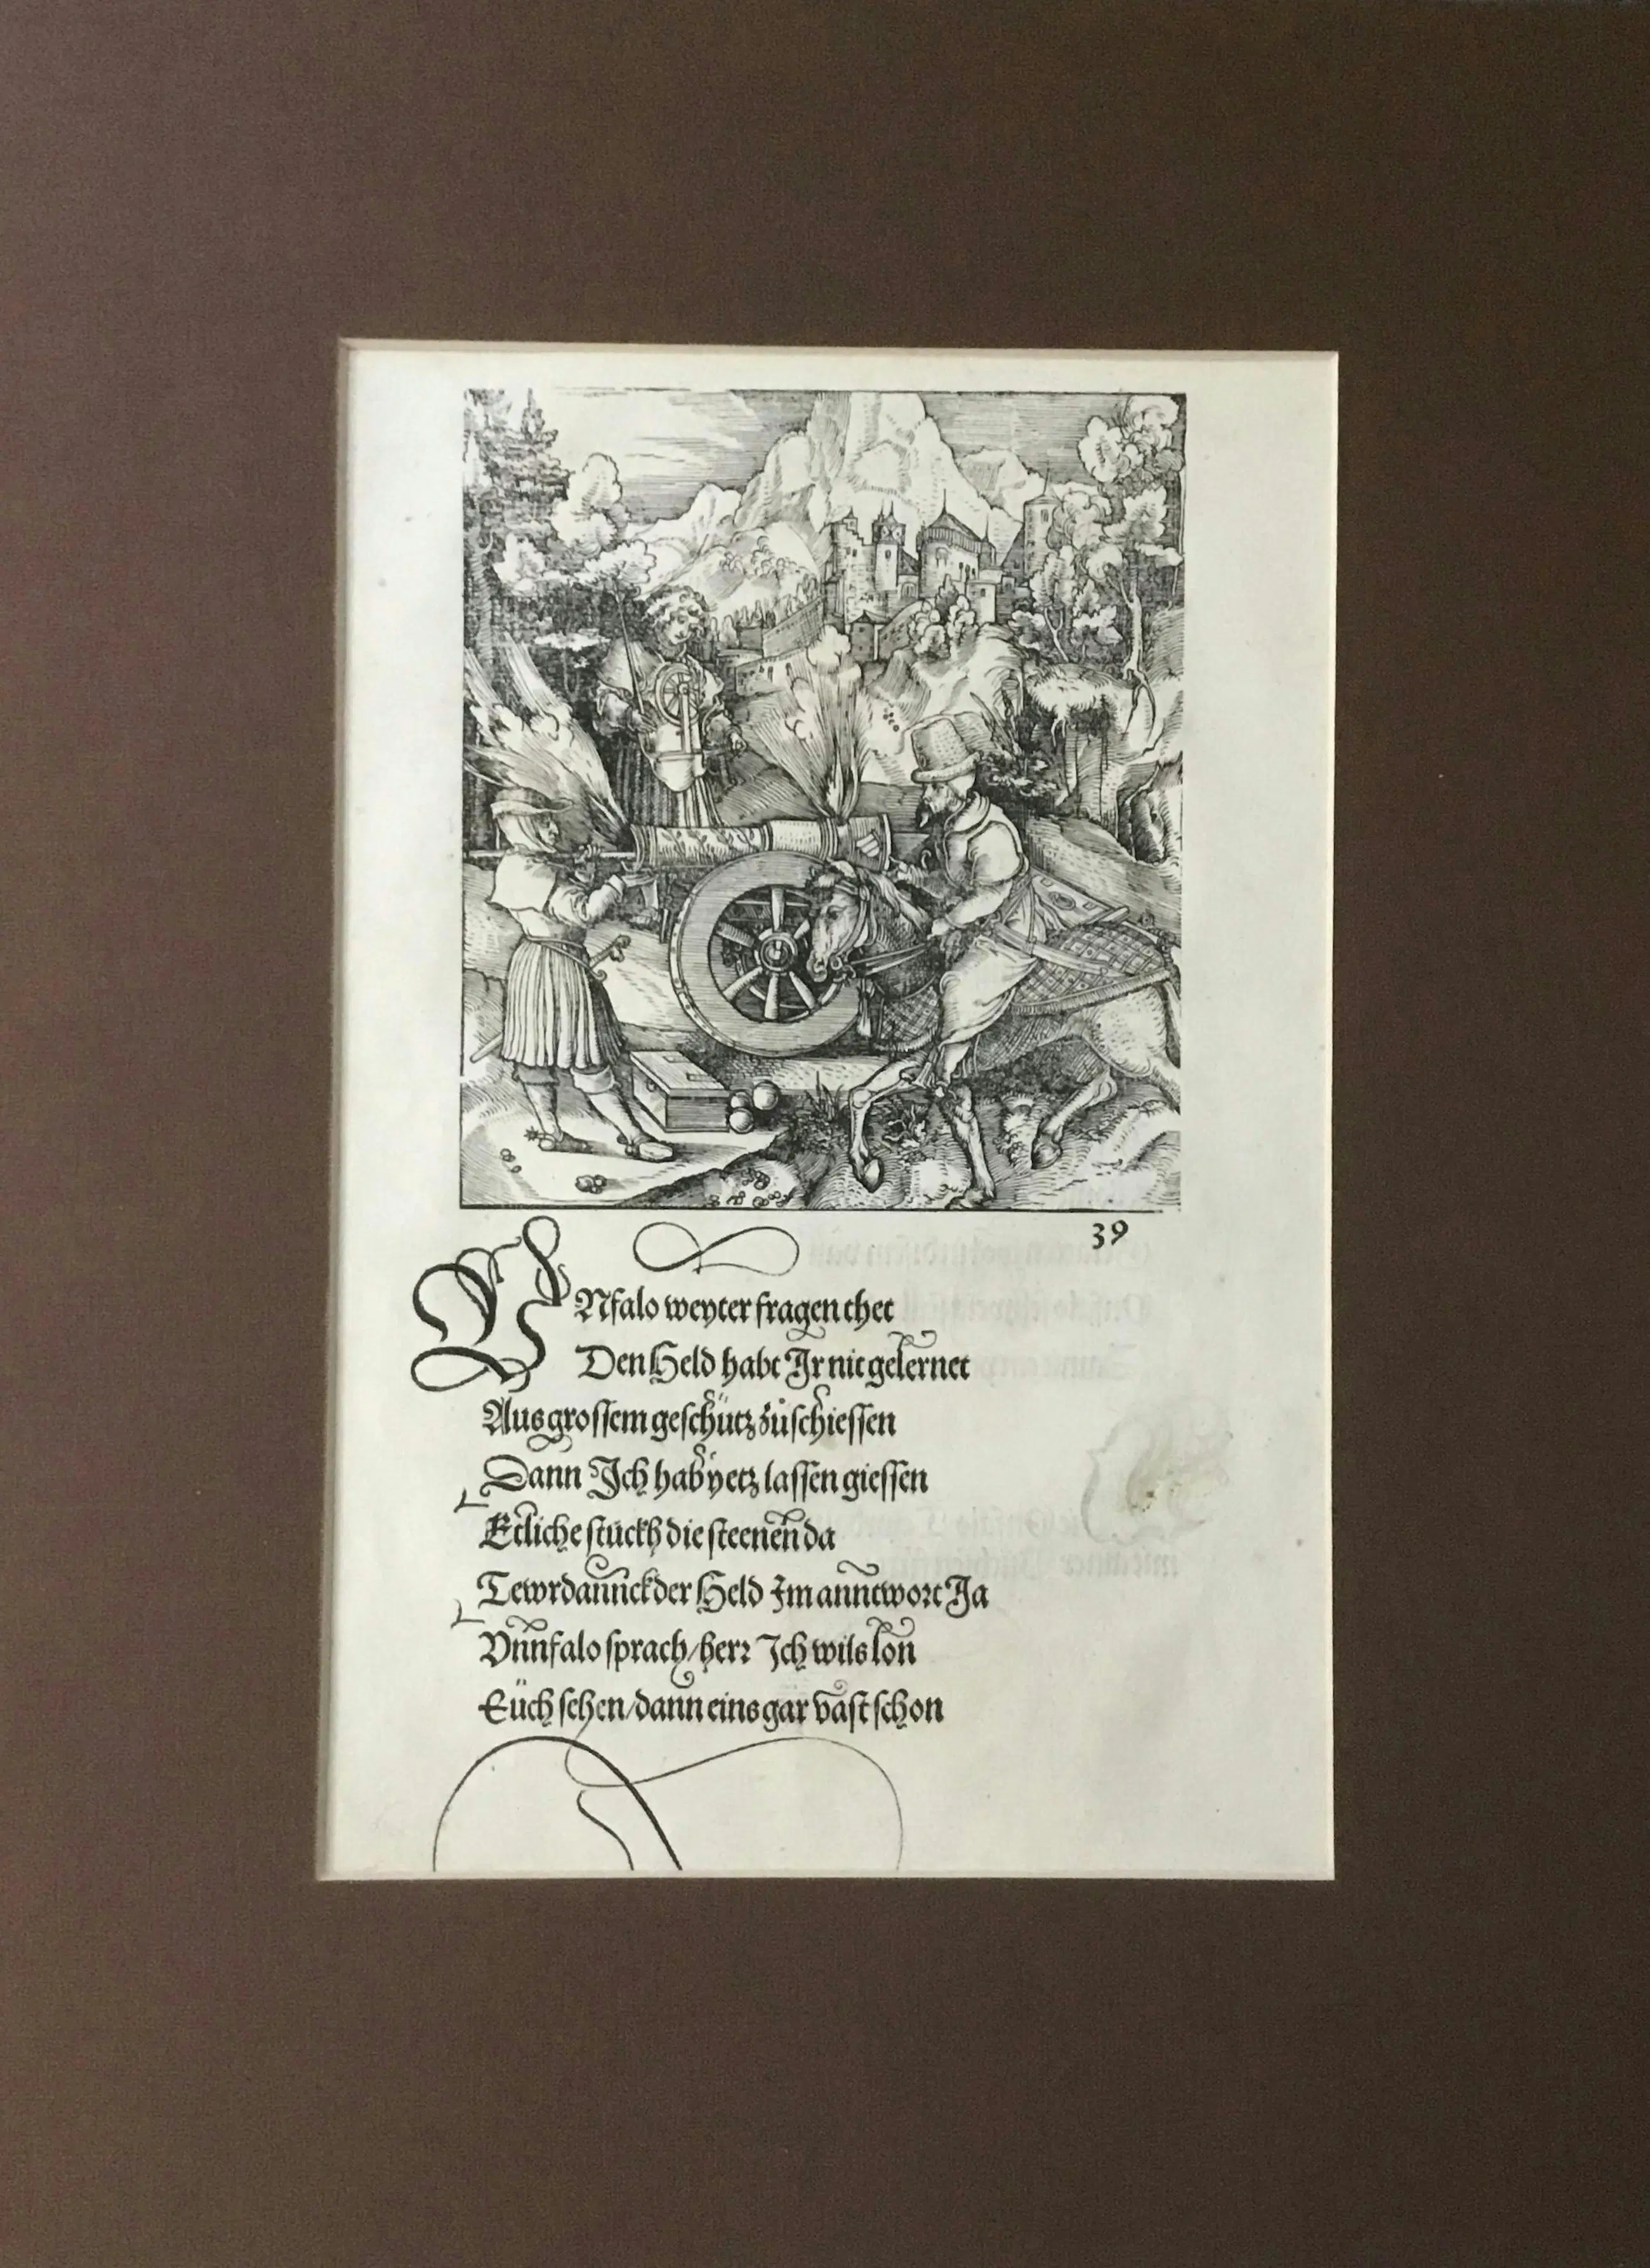 39
VNfalo weyter fragen thet
Den Held habt Jr nit gelernet
Aus grossem geschütz zůschiessen
Dann Jch hab yetz lassen giessen
Etliche stückh die steenen da
Tewrdannck der Held Jm anntwort Ja
Vnnfalo sprach/herr Jch wils lon
Eüch sehen/dann eins gar vast schon